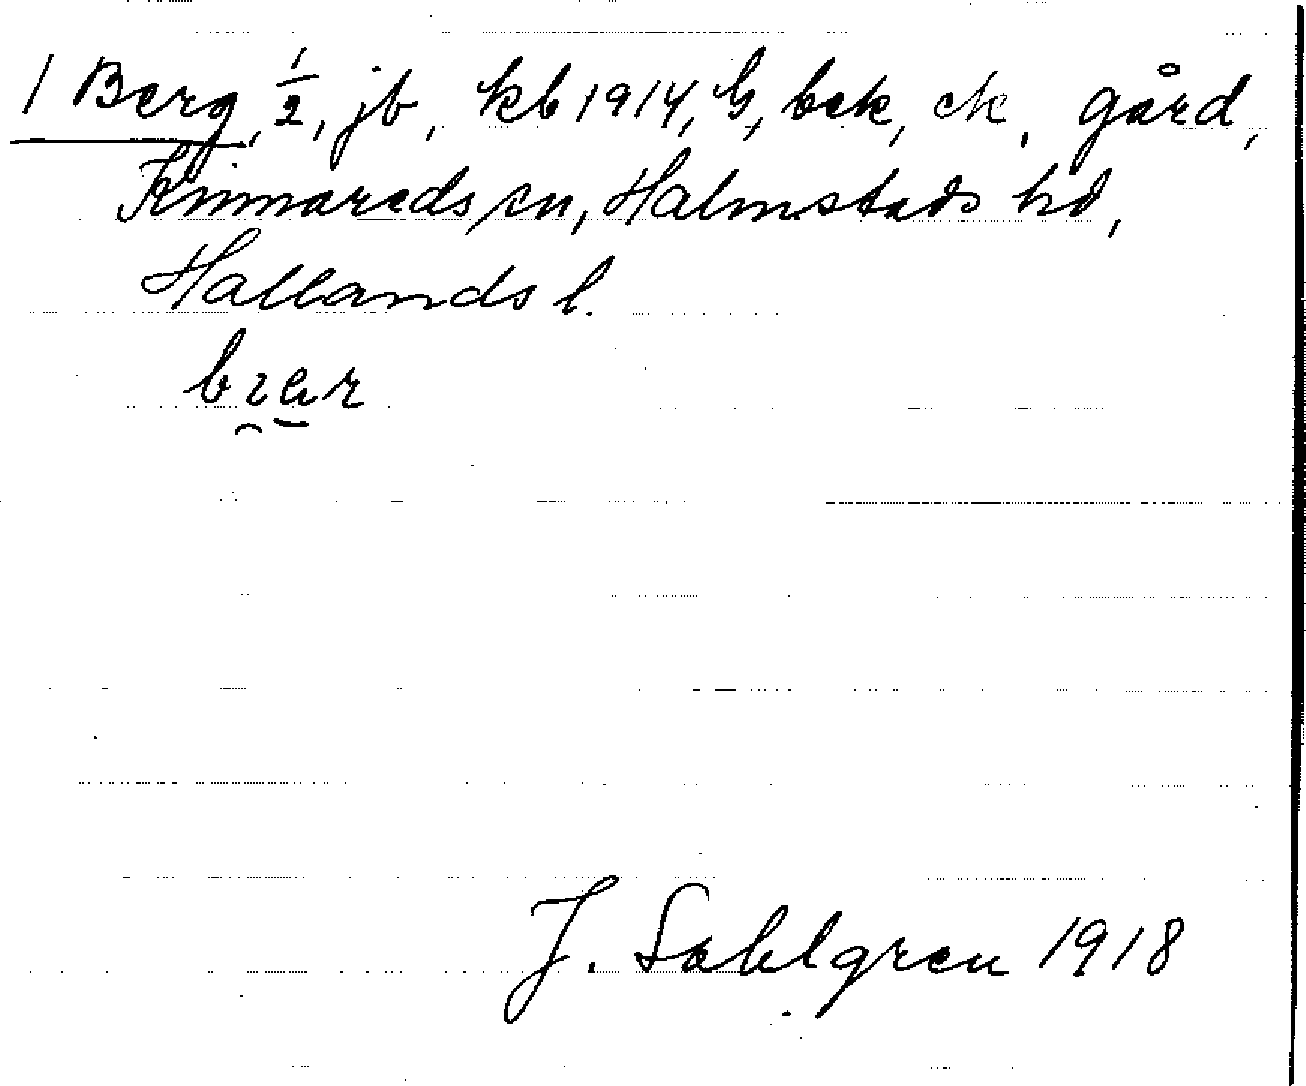 1 Berg, 1/2, jb, kb 1914, G, bek, ek, gård,
Kinnareds sn, Halmstads hd,
Hallands l.
J. Sahlgren 1918